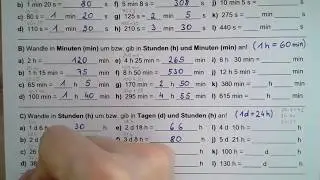 b) 1 min 20 s = 80 s f) 5 min 8 s = 308 s j) 10 min
c) 80 s = 1 min 20 s g) 125 s = 2 min 5 s k) 275 s = min
d) 110 s = 1 min 50 s h) 210 s = 3 min 30 s l) 440 s = min
B) Wandle in Minuten (min) um bzw. gib in Stunden (h) und Minuten (min) an! (1h = 60min)
a) 2 h = 120 min e) 4 h 25 min = 265 min i) 5 h 5 min = min
b) 1 h 15 min = 75 min f) 8 h 50 min = 530 min j) 10 h 10 min = min
c) 65 min = 1 h 5 min g) 170 min = 2 h 50 min k) 380 min = h
d) 100 min = 1 h 40 min h) 235 min = 3 h 55 min l) 555 min = h
C) Wandle in Stunden (h) um bzw. gib in Tagen (d) und Stunden (h) an! (1d=24h)
a) 1 d 6 h = 30 h e) 2 d 18 h = 66 h i) 4 d 10 h = h
b) 2 d f) 3 d 8 h = 80 h j) 5 d 21 h = h
c) 26 h = d h k) 76 h = d h
d) 38 h d h l) 130 h = d h